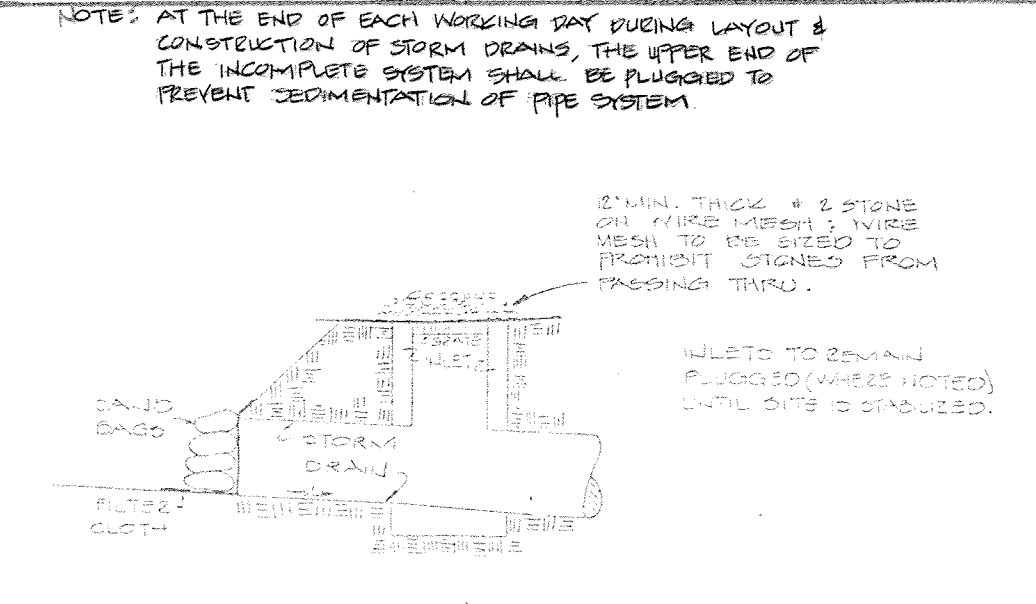 NOTE: AT THE END OF EACH WORKING DAY DURING LAYOUT &
CONSTRUCTION OF STORM DRAINS, THE UPPER END OF
THE INCOMPLETE SYSTEM SHALL BE PLUGGED TO
PREVENT SEDIMENTATION OF PIPE SYSTEM.
12" MIN. THICK # 2 STONE
ON WIRE MESH; WIRE
MESH TO BE SIZED TO
PROHIBIT STONES FROM
PASSING THRU.
GRATE
INLET
INLETS TO REMAIN
PLUGGED (WHERE NOTED)
UNTIL SITE IS STABLIZED.
SAND
BAGS
STORM
DRAIN
FILTER
CLOTH